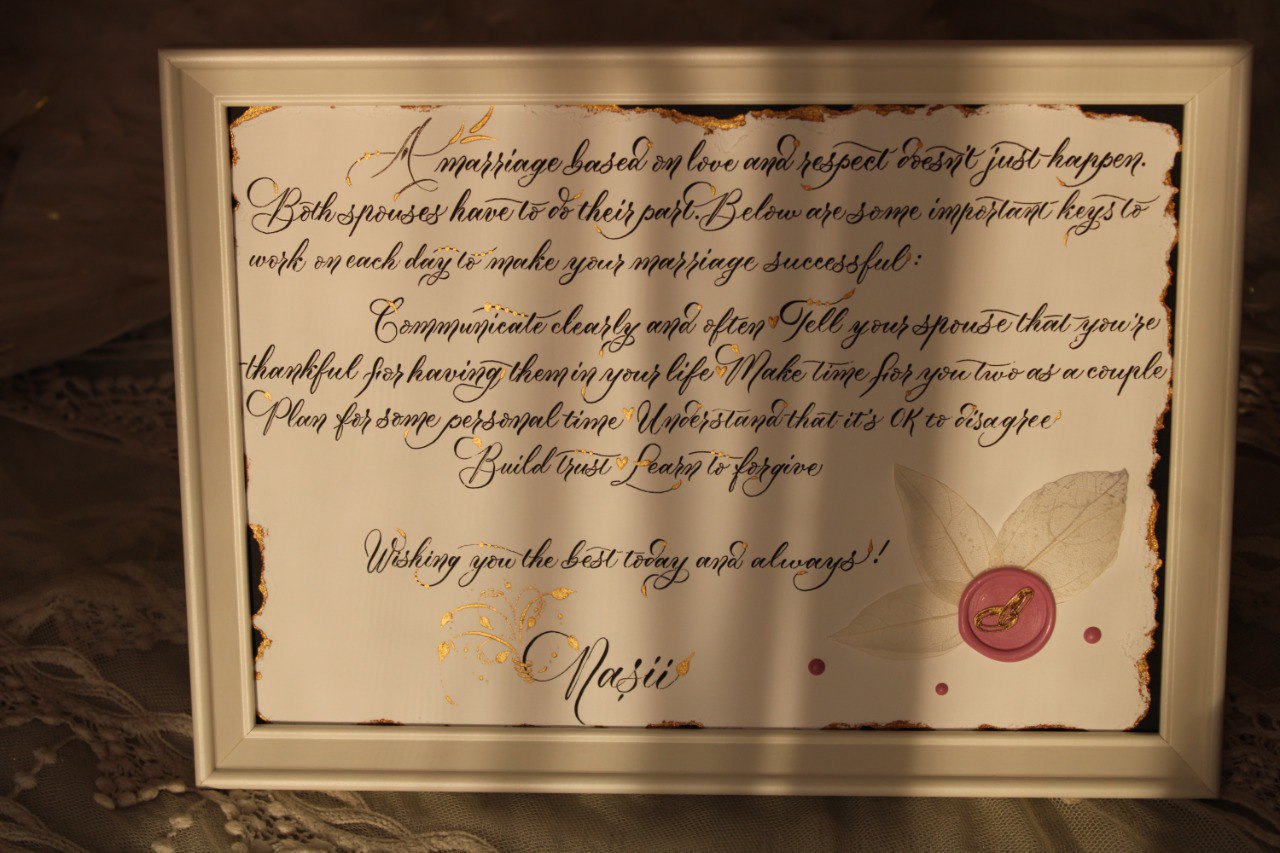 A marriage based on love and respect doesn't just happen.
Both spouses have to do their part. Below are some important keys to
work on each day to make your marriage successful:
Communicate clearly and often ♥ Tell your spouse that you're
thankful for having them in your life ♥ Make time for you two as a couple
Plan for some personal time ♥ Understand that it's OK to disagree
Build trust ♥ Learn to forgive
Wishing you the best today and always!
Nașii